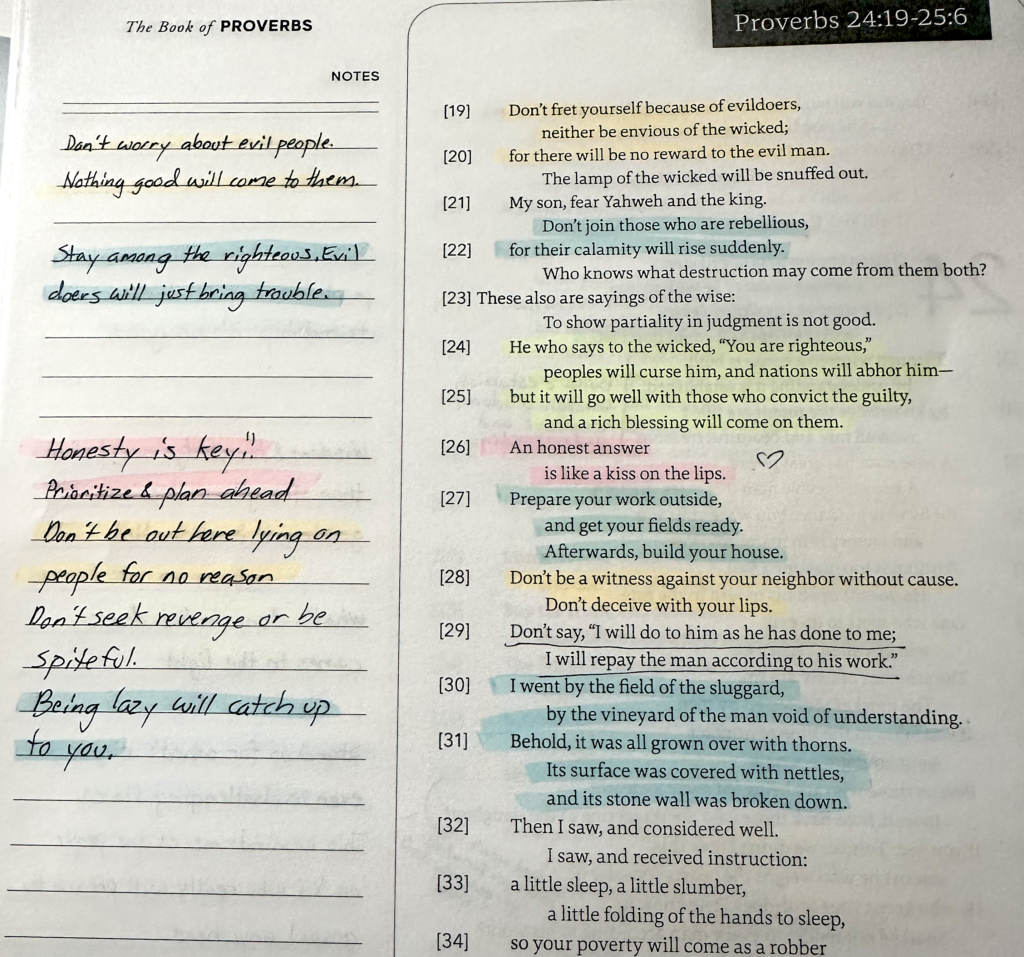 The Book of PROVERBS
NOTES
Don't worry about evil people.
Nothing good will come to them.
Stay among the righteous. Evil
doers will just bring trouble.
Honesty is key!!
Prioritize & plan ahead
Don't be out here lying on
people for no reason
Don't seek revenge or be
spiteful.
Being lazy will catch up
to you.
Proverbs 24:19-25:6
[19] Don't fret yourself because of evildoers,
neither be envious of the wicked;
[20] for there will be no reward to the evil man.
The lamp of the wicked will be snuffed out.
[21] My son, fear Yahweh and the king.
Don't join those who are rebellious,
[22] for their calamity will rise suddenly.
Who knows what destruction may come from them both?
[23] These also are sayings of the wise:
To show partiality in judgment is not good.
[24] He who says to the wicked, “You are righteous,”
peoples will curse him, and nations will abhor him—
[25] but it will go well with those who convict the guilty,
and a rich blessing will come on them.
[26] An honest answer
is like a kiss on the lips.
[27] Prepare your work outside,
and get your fields ready.
Afterwards, build your house.
[28] Don't be a witness against your neighbor without cause.
Don't deceive with your lips.
[29] Don't say, “I will do to him as he has done to me;
I will repay the man according to his work.”
[30] I went by the field of the sluggard,
by the vineyard of the man void of understanding.
[31] Behold, it was all grown over with thorns.
Its surface was covered with nettles,
and its stone wall was broken down.
[32] Then I saw, and considered well.
I saw, and received instruction:
[33] a little sleep, a little slumber,
a little folding of the hands to sleep,
[34] so your poverty will come as a robber